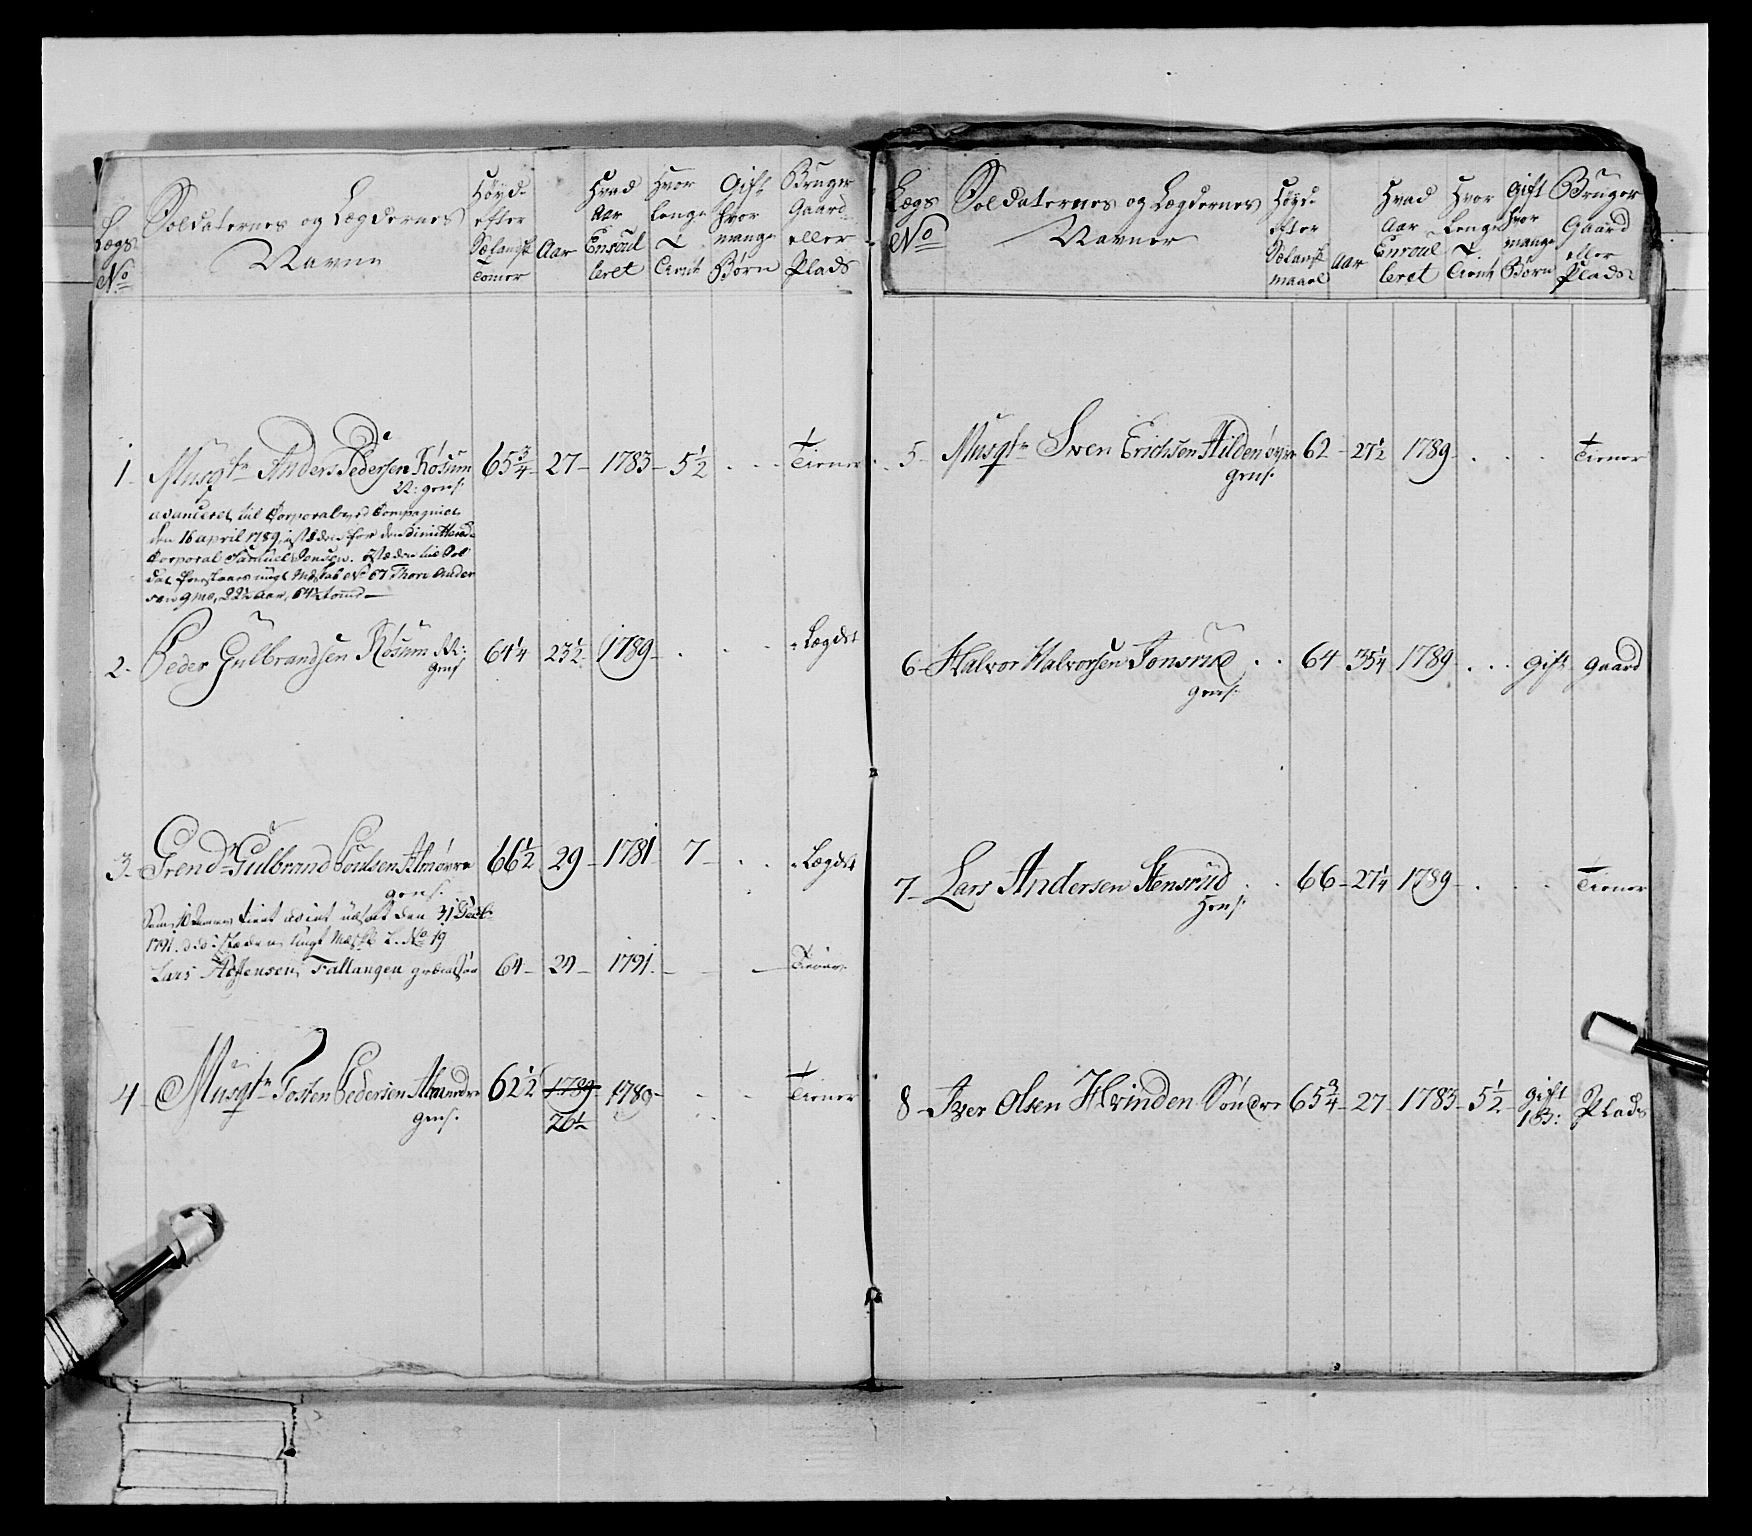 Lægs
No
Soldaternes og Lægdernes
Navne
Høyde
efter
Sælandsk
Tomer
Aar
Hvad
Aar
Enroul
leret
Hvor
lenge
Tient
Gift
hvor
mange
Børn
Bruger
Gaard
eller
Plads
1 Musqtr Anders Pedersen Røsum 65¾ 27 1783 5½ Tiener
N: gens:
avanceret til Corporal ved Compagniet
den 16 april 1789, istæden for den dimitterede
Corporal Samuel Jensen. Istæden til Sol
dat No 67 Thore Ander
sen 22½ Aar, 64½ tomme
2 Peder Gulbrandsen Røsum N: 64¼ 23½ 1789 Lægdet
gens
3 Grend. Gulbrand Poulsen Almovre 66½ 29 1781 7 Lægdet
gens:
tient udsat den 31 Decbr
1791. istæden No 19
Lars Steffensen Fallangen 64 24 1791 Tiener
4 Musqtr Tosten Pedersen Almendre 62½ 1789 1789 Tiener
gens: 26½
Lægs
No
Soldaternes og Lægdernes
Navner
Høyde
efter
Sælandsk
maael
Aar
Hvad
Aar
Enroul
leret
Hvor
Lenge
Tient
Gift
hvor
mange
Børn
Bruger
Gaard
eller
Plads
5 Musqtr Sven Erichsen Hildenøyer 62 27½ 1789 Tiener
gens:
6 Halvor Halvorsen Jonsrud 64 35¼ 1789 Gift gaard
gens:
7 Lars Andersen Stensrud 66 27¼ 1789 Tiener
gens:
8 Iver Olsen Hvinden Søndre 65¾ 27 1783 5½ gift Plads
1 B: